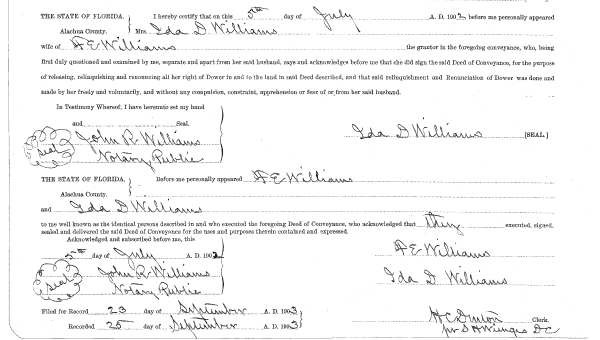 THE STATE OF FLORIDA. I hereby certify that on this 5th day of July A. D. 1902 before me personally appeared
Alachua County. Mrs. Ida D Williams
wife of H E Williams the grantor in the foregoing conveyance, who, being
first duly questioned and examined by me, separate and apart from her said husband, says and acknowledge before me that she did sign the said Deed of Conveyance, for the purpose
of releasing, relinquishing and renouncing all her right of Dower in and to the land in said Deed described, and that said relinquishment and Renunciation of Dower was done and
made by her freely and voluntarily, and without any compulsion, constraint, apprehension or fear of or from her said husband.
In Testimony Whereof, I have hereunto set my hand
and Seal.
Seal John R. Williams Ida D Williams [SEAL]
Notary Public
THE STATE OF FLORIDA. Before me personally appeared H E Williams
Alachua County.
and Ida D Williams
to me well known as the identical persons described in and who executed the foregoing Deed of Conveyance, who acknowledged that they executed, signed,
sealed and delivered the said Deed of Conveyance for the uses and purposes therein contained and expressed.
Acknowledged and subscribed before me, this
5th day of July A. D. 1902 H E Williams
Seal John R. Williams Ida D Williams
Notary Public
Filed for Record 23 day of September A. D. 1903 H C Denton Clerk.
Recorded 25 day of September A. D. 1903 pr S H Wienges D C